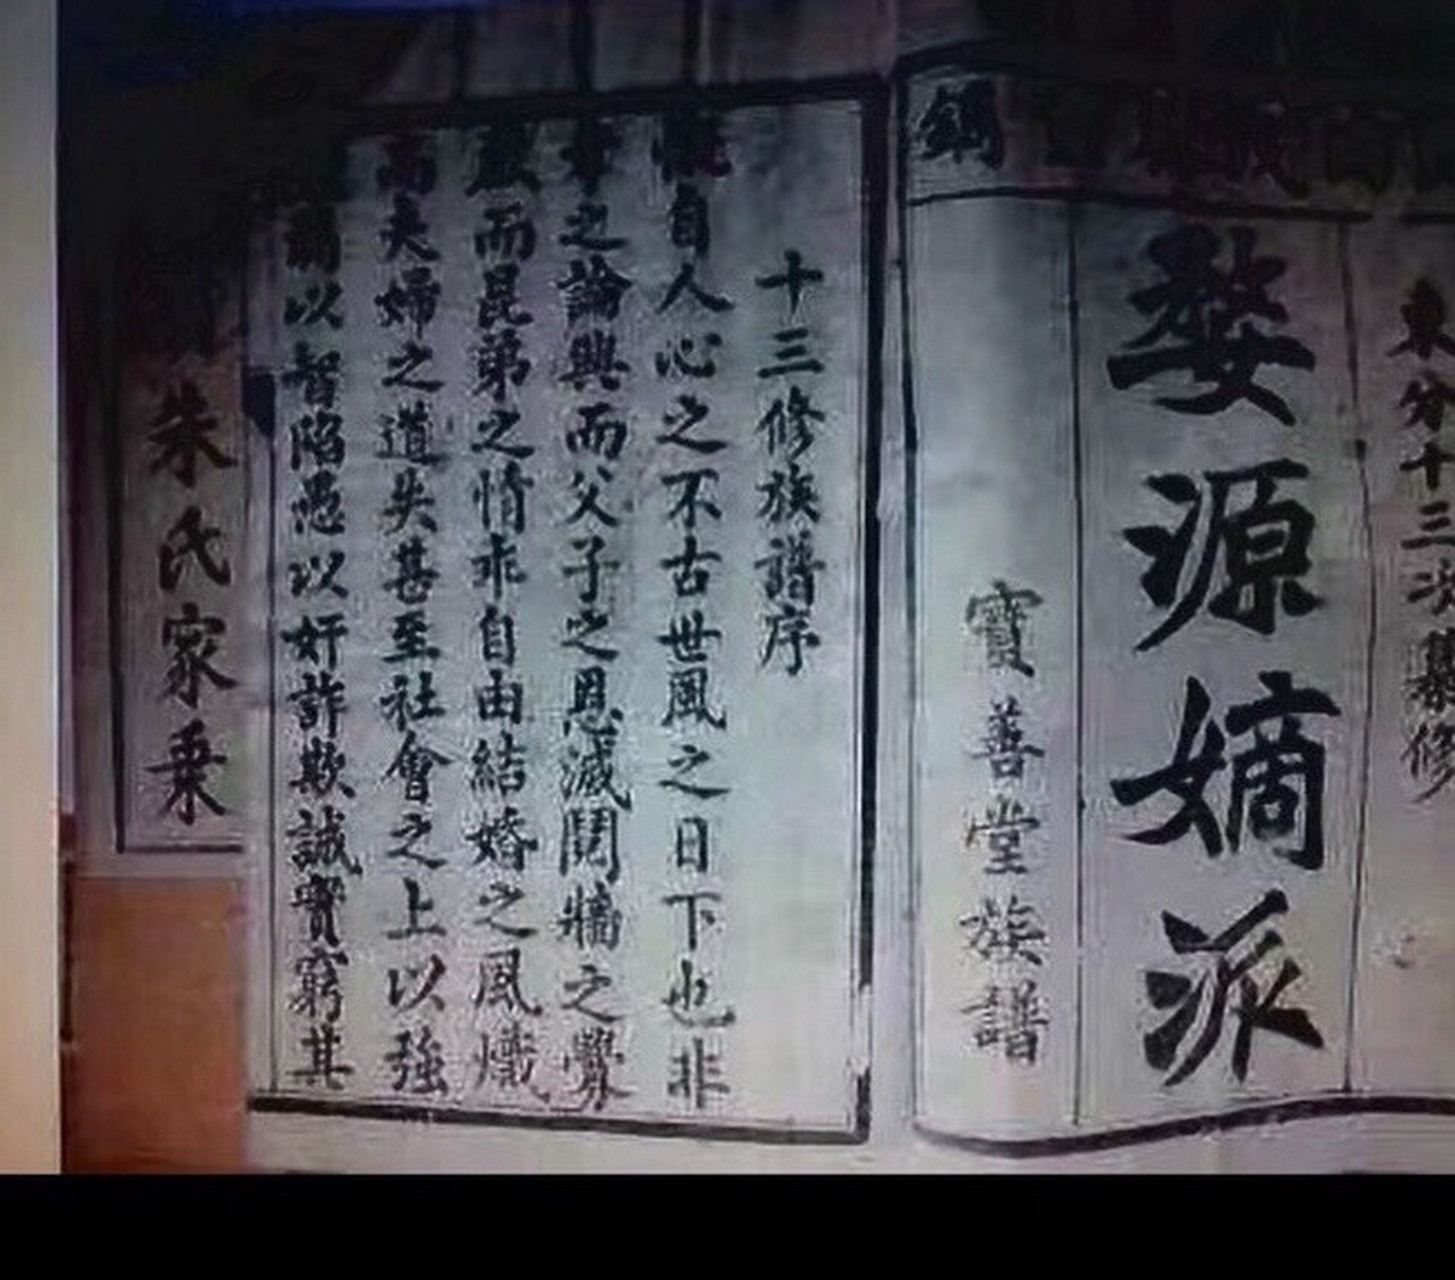 東分十三次纂修
婺源嫡派
寶善堂族譜
十三修族譜序
自人心之不古世風之日下也非
孝之論興而父子之恩滅鬩牆之釁
而昆弟之情乖自由結婚之風熾
而夫婦之道失甚至社會之上以強
以智陷愚以奸詐欺誠實窮其
朱氏家乘